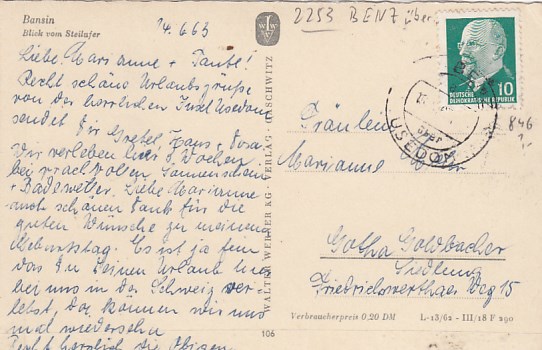 Bansin
Blick vom Steilufer
14.6.63
Liebe Marianne + Tante!
Recht schöne Urlaubsgrüße
von der herrlichen Insel Usedom
sendet Dir Gretel, Hans +
Wir verleben hier 3 Wochen
bei prachtvollem Sonnenschein
+ Badewetter. Liebe Marianne
noch schönen Dank für die
guten Wünsche zu meinem
Geburtstag. Es ist ja fein
das Du Deinen Urlaub
bei uns in der Schweiz ver
lebst, da können wir uns
mal wiedersehn
Recht herzlich die Obigen
WALTER WERNER KG · VERLAG · GASCHWITZ
WW
106
2253 BENZ über
DEUTSCHE
DEMOKRATISCHE REPUBLIK
10
über
USEDOM
846
Fräulein
Marianne
Gotha Goldbacher
Siedlung
Friedrichswerther Weg 15
Verbraucherpreis 0,20 DM L-13/62 - III/18 F 290